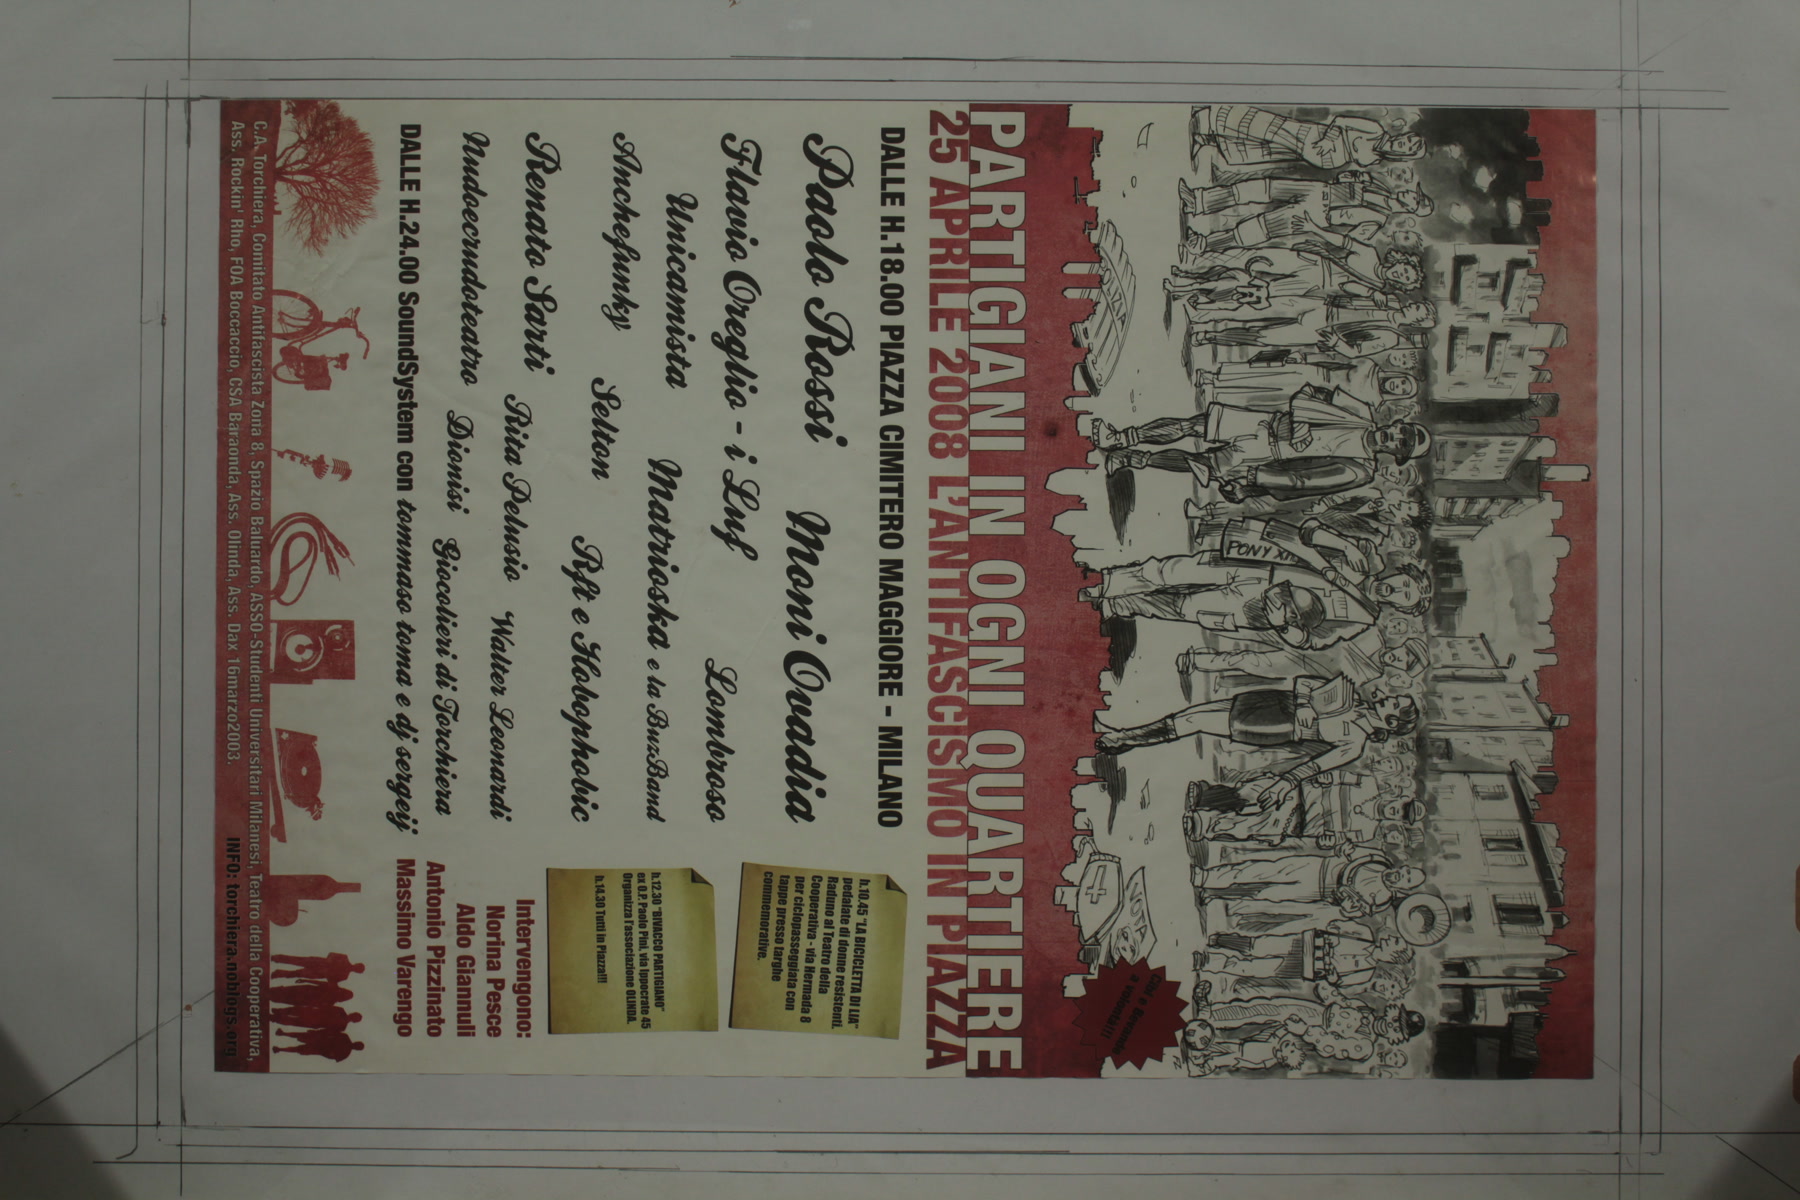 POLIZIA
PONY X
NOVA
Cibi e Bevande
a volontà!!!
PARTIGIANI IN OGNI QUARTIERE
25 APRILE 2008 L'ANTIFASCISMO IN PIAZZA
DALLE H.18.00 PIAZZA CIMITERO MAGGIORE - MILANO
Paolo Rossi Moni Ovadia
Flavio Oreglio - i Luf Lombroso
Unicamista Matrioska e la BuzBand
Anchefunky Selton Rft e Hobophobic
Renato Sarti Rita Pelusio Walter Leonardi
Nudoecrudoteatro Dionisi Giocolieri di Torchiera
DALLE H.24.00 SoundSystem con tommaso toma e dj sergeij
h.10.45 "LA BICICLETTA DI LIA"
pedalate di donne resistenti.
Raduno al Teatro della
Cooperativa - via Hermada 8
per ciclopasseggiata con
tappe presso targhe
commemorative.
h.12.30 "BIVACCO PARTIGIANO"
ex O.P. Paolo Pini, via Ippocrate 45
Organizza l'associazione OLINDA.
h.14.30 Tutti in Piazza!!!
Intervengono:
Norina Pesce
Aldo Giannuli
Antonio Pizzinato
Massimo Varengo
C.A. Torchiera, Comitato Antifascista Zona 8, Spazio Baluardo, ASSO-Studenti Universitari Milanesi, Teatro della Cooperativa,
Ass. Rockin' Rho, FOA Boccaccio, CSA Baraonda, Ass. Olinda, Ass. Dax 16marzo2003.
INFO: torchiera.noblogs.org